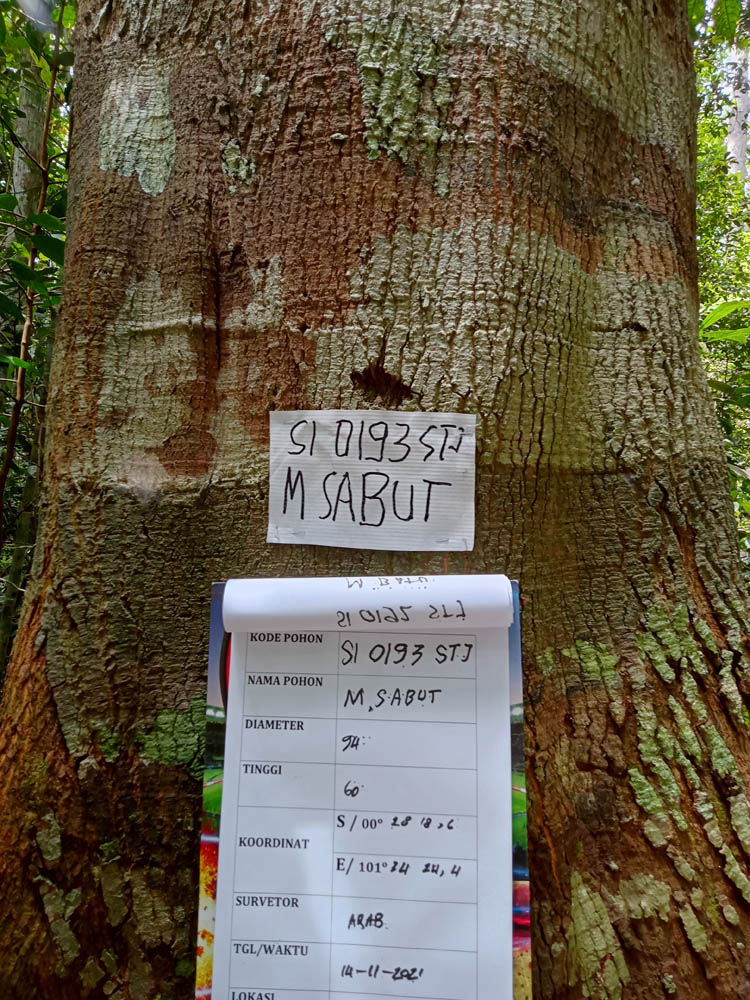 SI 0193 STJ
M SABUT
SI 0192 STJ
KODE POHON SI 0193 STJ
NAMA POHON M. SABUT
DIAMETER 94
TINGGI 60
KOORDINAT
S / 00° 28 18,6
E/ 101° 34 24,4
SURVETOR ARAB
TGL/WAKTU 14-11-2021
LOKASI